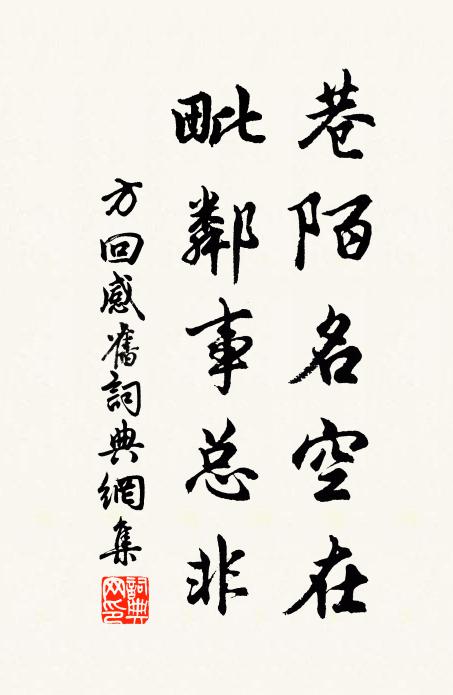 巷陌名空在
毗鄰事总非
方回感舊詞典網集
詞典網印